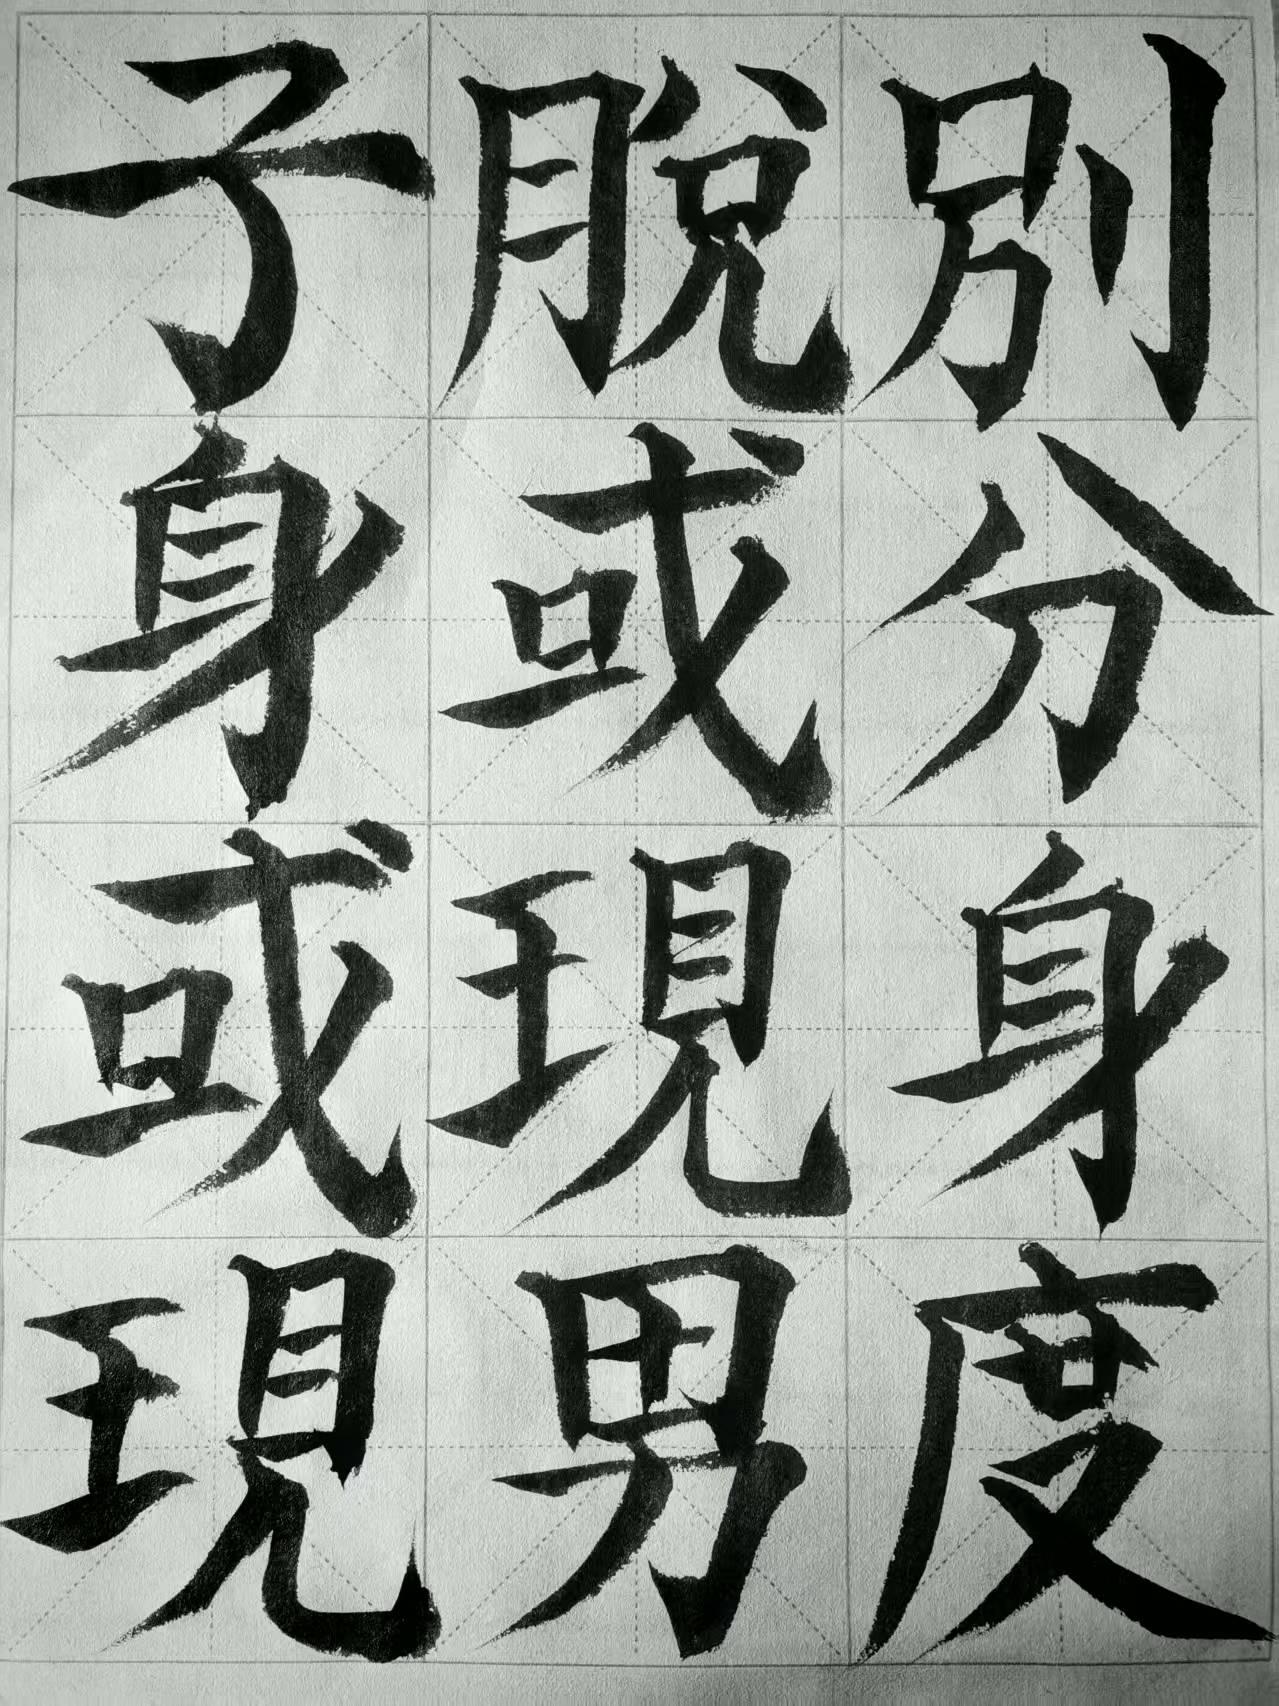 別分身度
脫或現男
子身或現